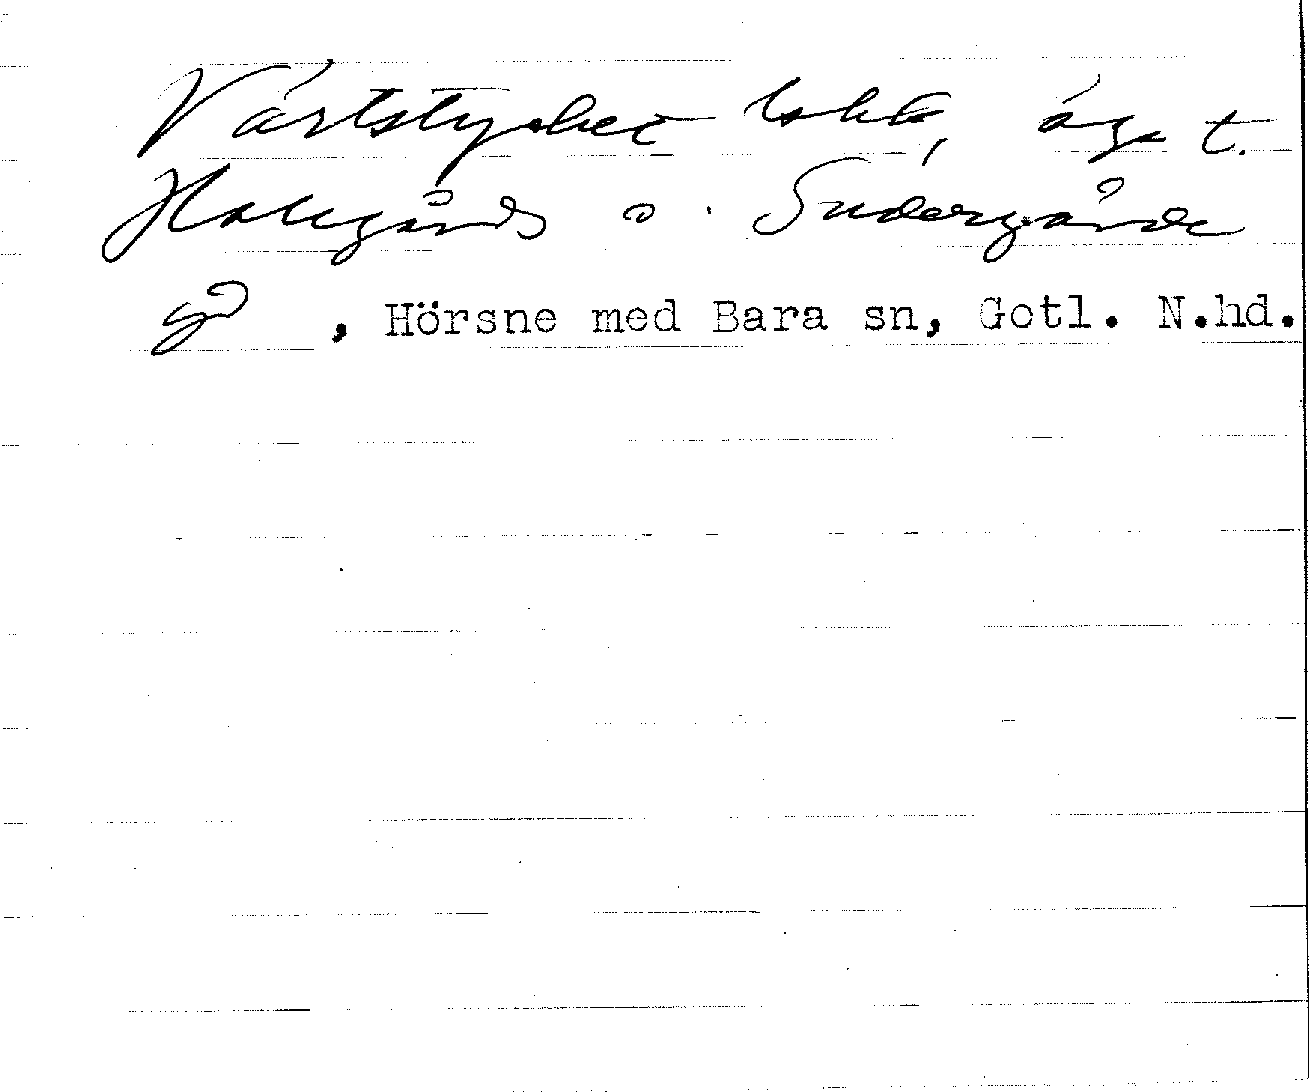 Vårtstycket , äga t.
Hallgårds o. Sudergårde
gd , Hörsne med Bara sn, Gotl. N.hd.